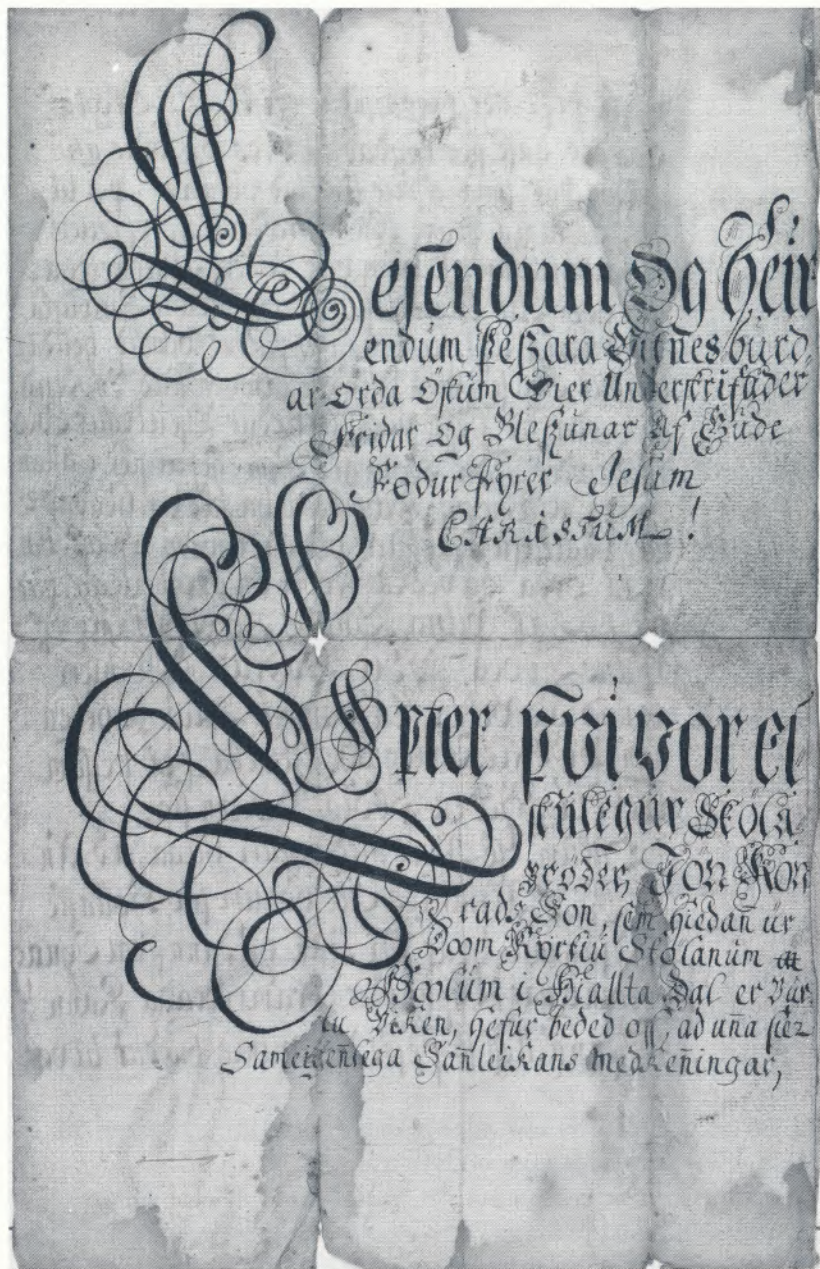 Lesendum Og Heir
endum þeßara Vitnes burd
ar Orda Öskum Vier Underskrifader
Fridar Og Bleßunar Af Gude
Fodur Fyrer Jesum
CHRISTUM!
Epter þvi vor el
skulegur Skóla
Bróder, JÓN KON
rads Son, sem hiedan ur
Doom Kyrkiu Skolanum at
Hoolum i Hiallta Dal er Bur
tu Viken, hefur beded oss, ad uña sier
Sameigeñlega Sañleikans medkeñingar,